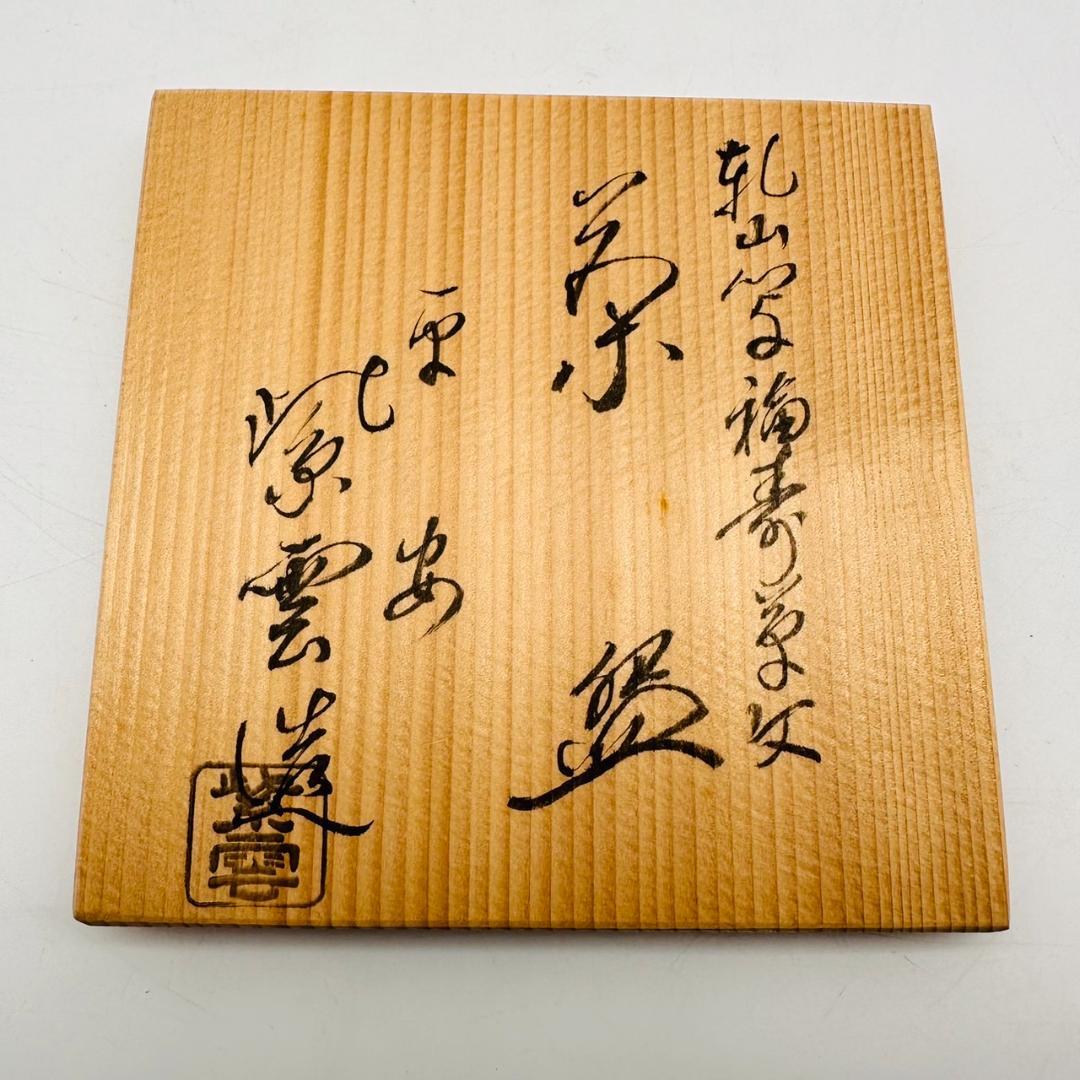 乾山写福寿草文
茶盌
平安
紫雲造
紫雲